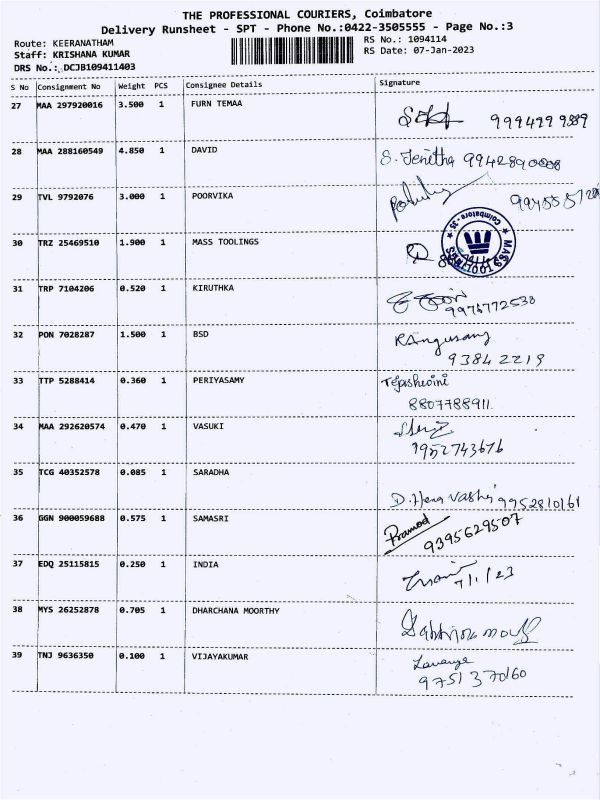 THE PROFESSIONAL COURIERS, Coimbatore
Delivery Runsheet - SPT - Phone No.:0422-3505555 - Page No.:3
Route: KEERANATHAM RS No.: 1094114
Staff: KRISHANA KUMAR RS Date: 07-Jan-2023
DRS No.: DCJB109411403
S No Consignment No Weight PCS Consignee Details Signature
27 MAA 297920016 3.500 1 FURN TEMAA
28 MAA 288160549 4.850 1 DAVID S. Jenitha 9942890008
29 TVL 9792076 3.000 1 POORVIKA
30 TRZ 25469510 1.900 1 MASS TOOLINGS
MASS TOOLINGS
Coimbatore - 35
31 TRP 7104206 0.520 1 KIRUTHKA
9975772538
32 PON 7028287 1.500 1 BSD
93842219
33 TTP 5288414 0.360 1 PERIYASAMY
8807788911
34 MAA 292620574 0.470 1 VASUKI
9952743676
35 TCG 40352578 0.085 1 SARADHA
9952810161
36 GGN 900059688 0.575 1 SAMASRI Pramod
9395629507
37 EDQ 25115815 0.250 1 INDIA
7/1/23
38 MYS 26252878 0.705 1 DHARCHANA MOORTHY
39 TNJ 9636350 0.100 1 VIJAYAKUMAR Lavanya
9751370160